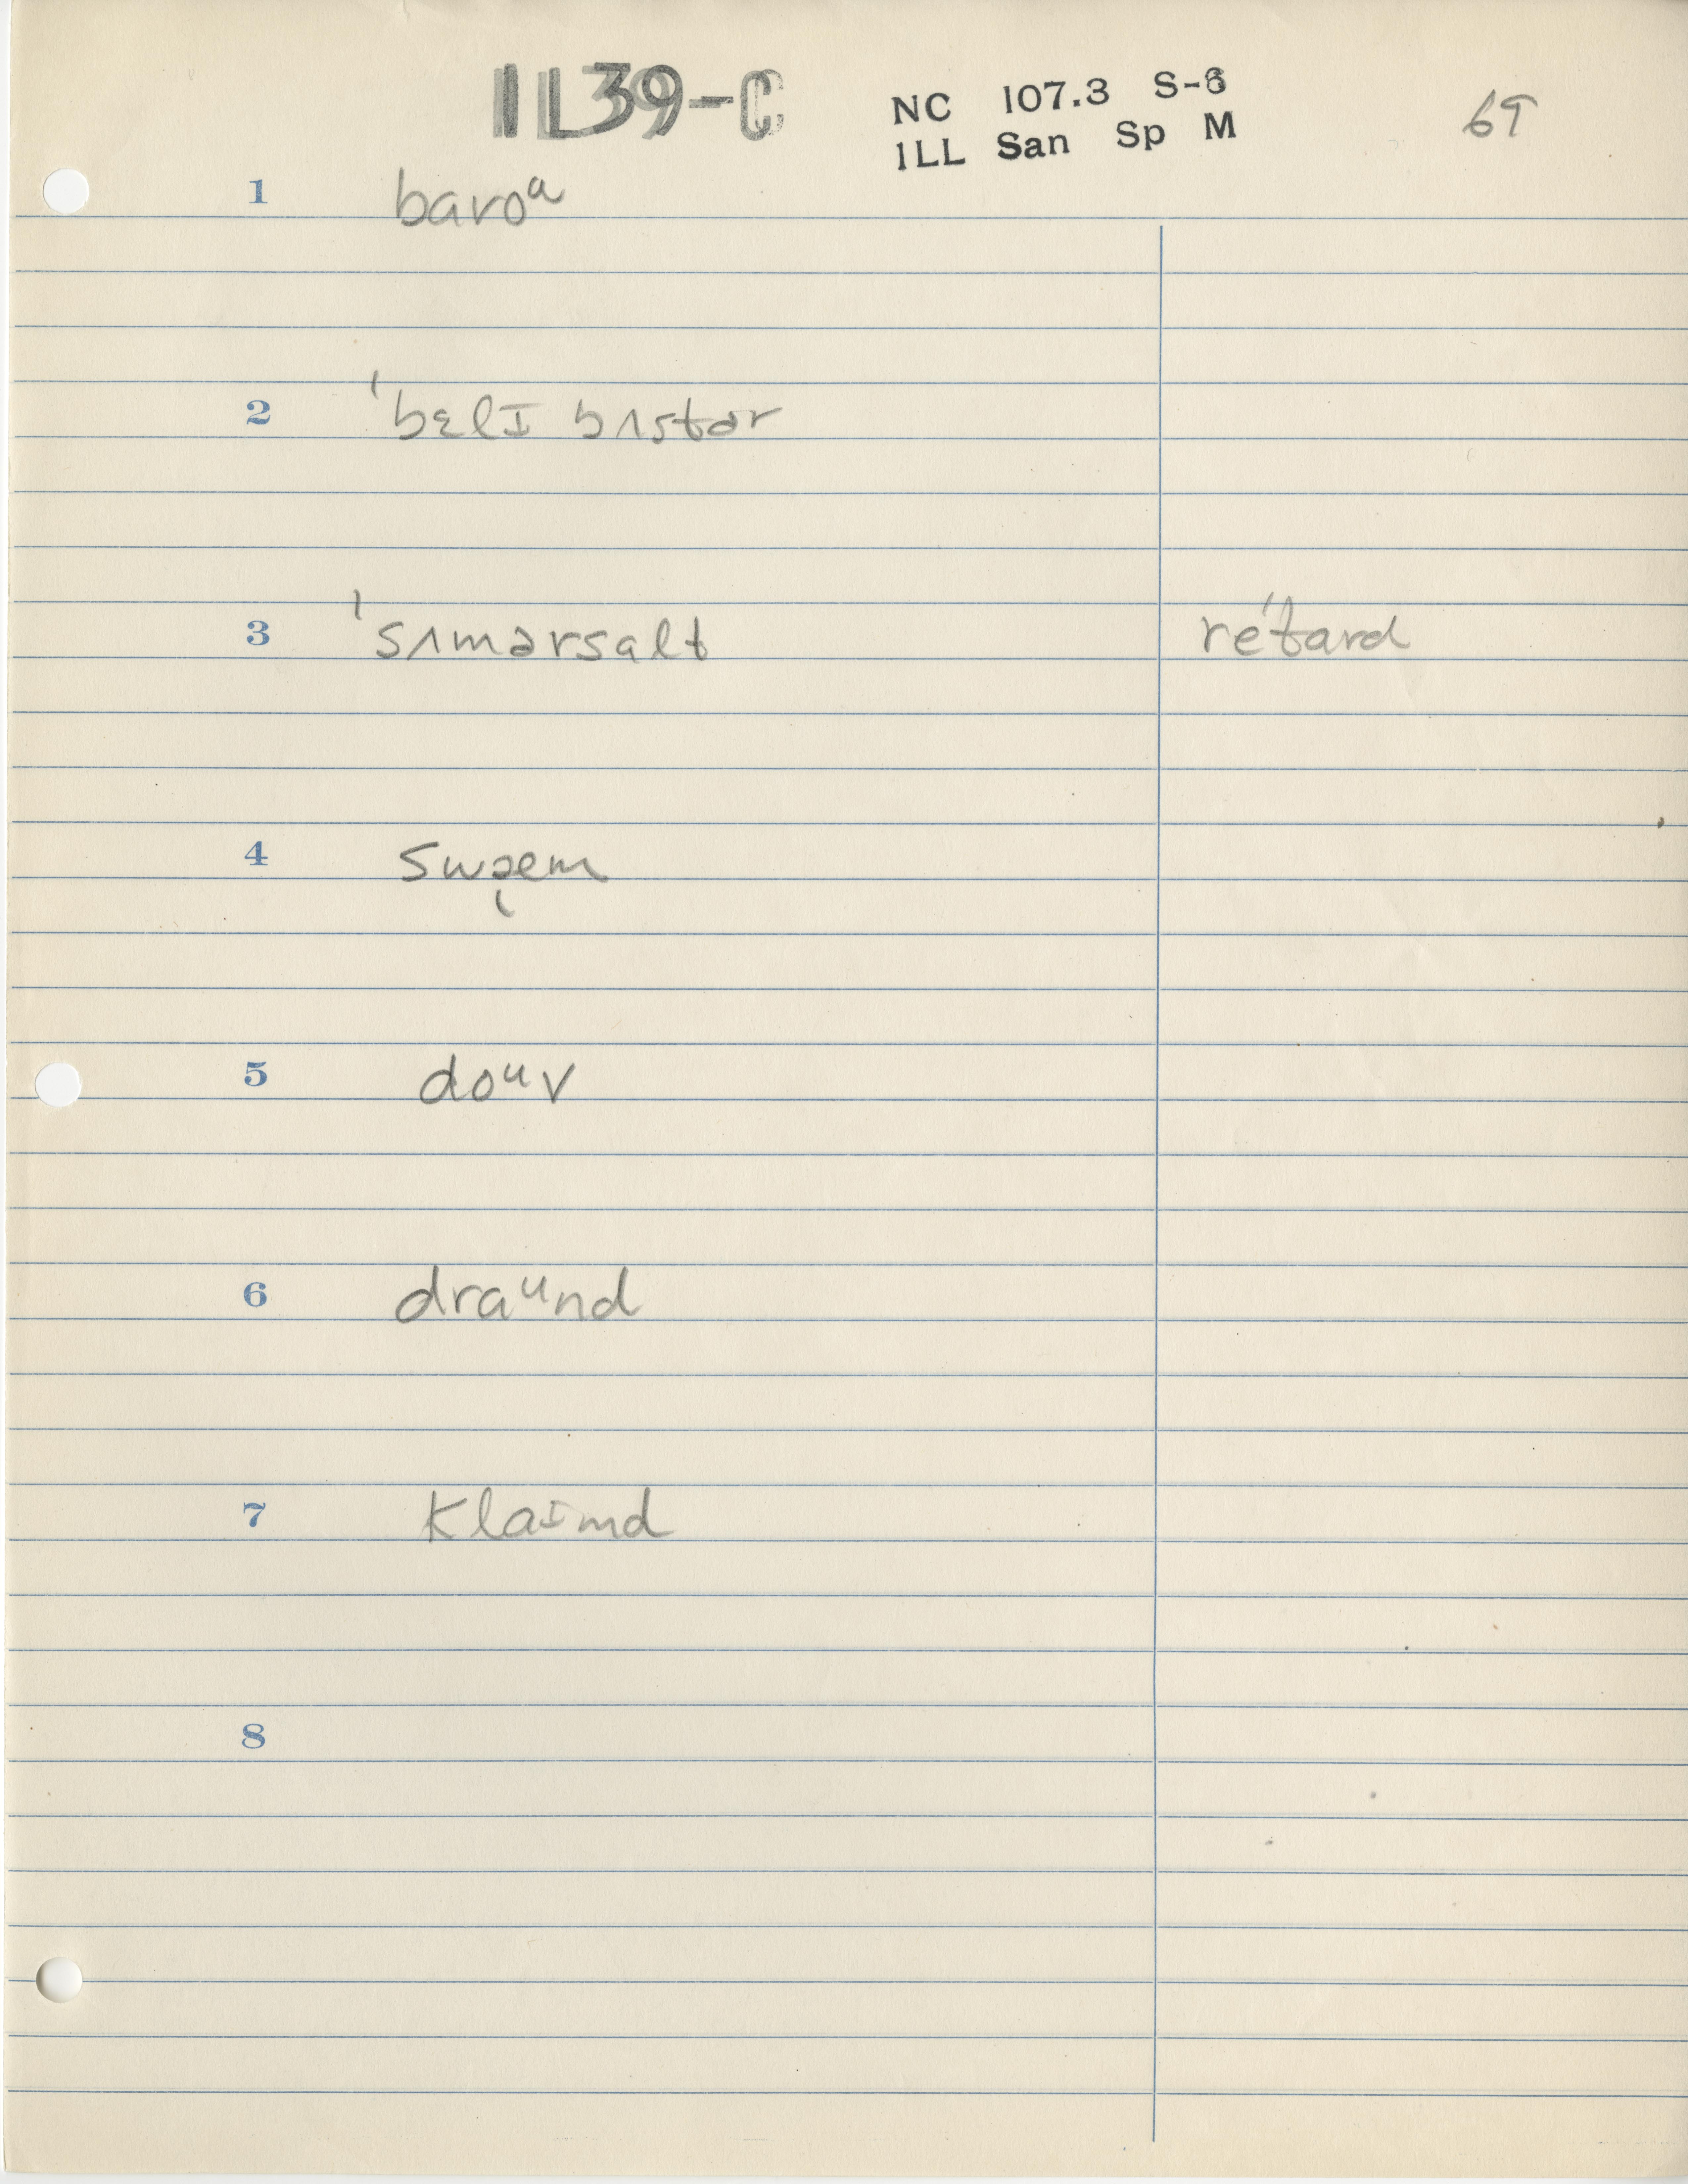 IL39-C
NC 107.3 S-6
ILL San Sp M
69
1 baroᵘ
2 ˈbɛlɪ bʌstər
3 ˈsʌmərsalt reˈtard
4 swɜem
5 doᵘv
6 draᵘnd
7 klaɪmd
8